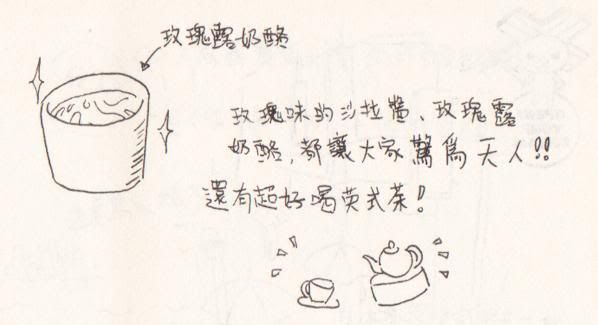 玫瑰露奶酪
玫瑰味的沙拉醬、玫瑰露
奶酪,都讓大家驚為天人!!
還有超好喝英式茶!